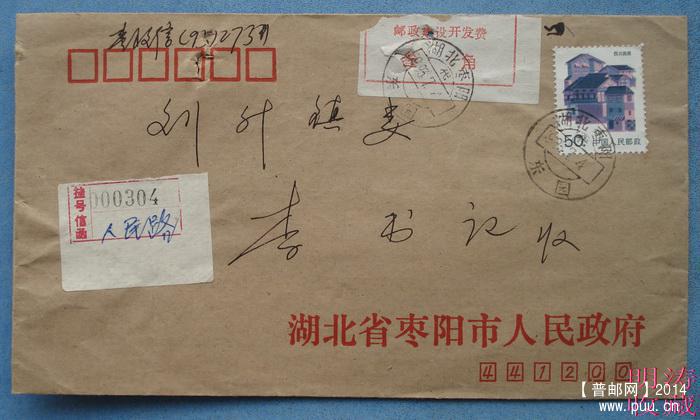 枣政信(95)273号
邮政建设开发费
角
湖北枣阳
四川民居
50分 中国人民邮政
湖北枣阳
刘升镇委
挂号信函
000304
人民路
李书记收
湖北省枣阳市人民政府
441200
明涛收藏
【普邮网】2014
www.ipuu.cn